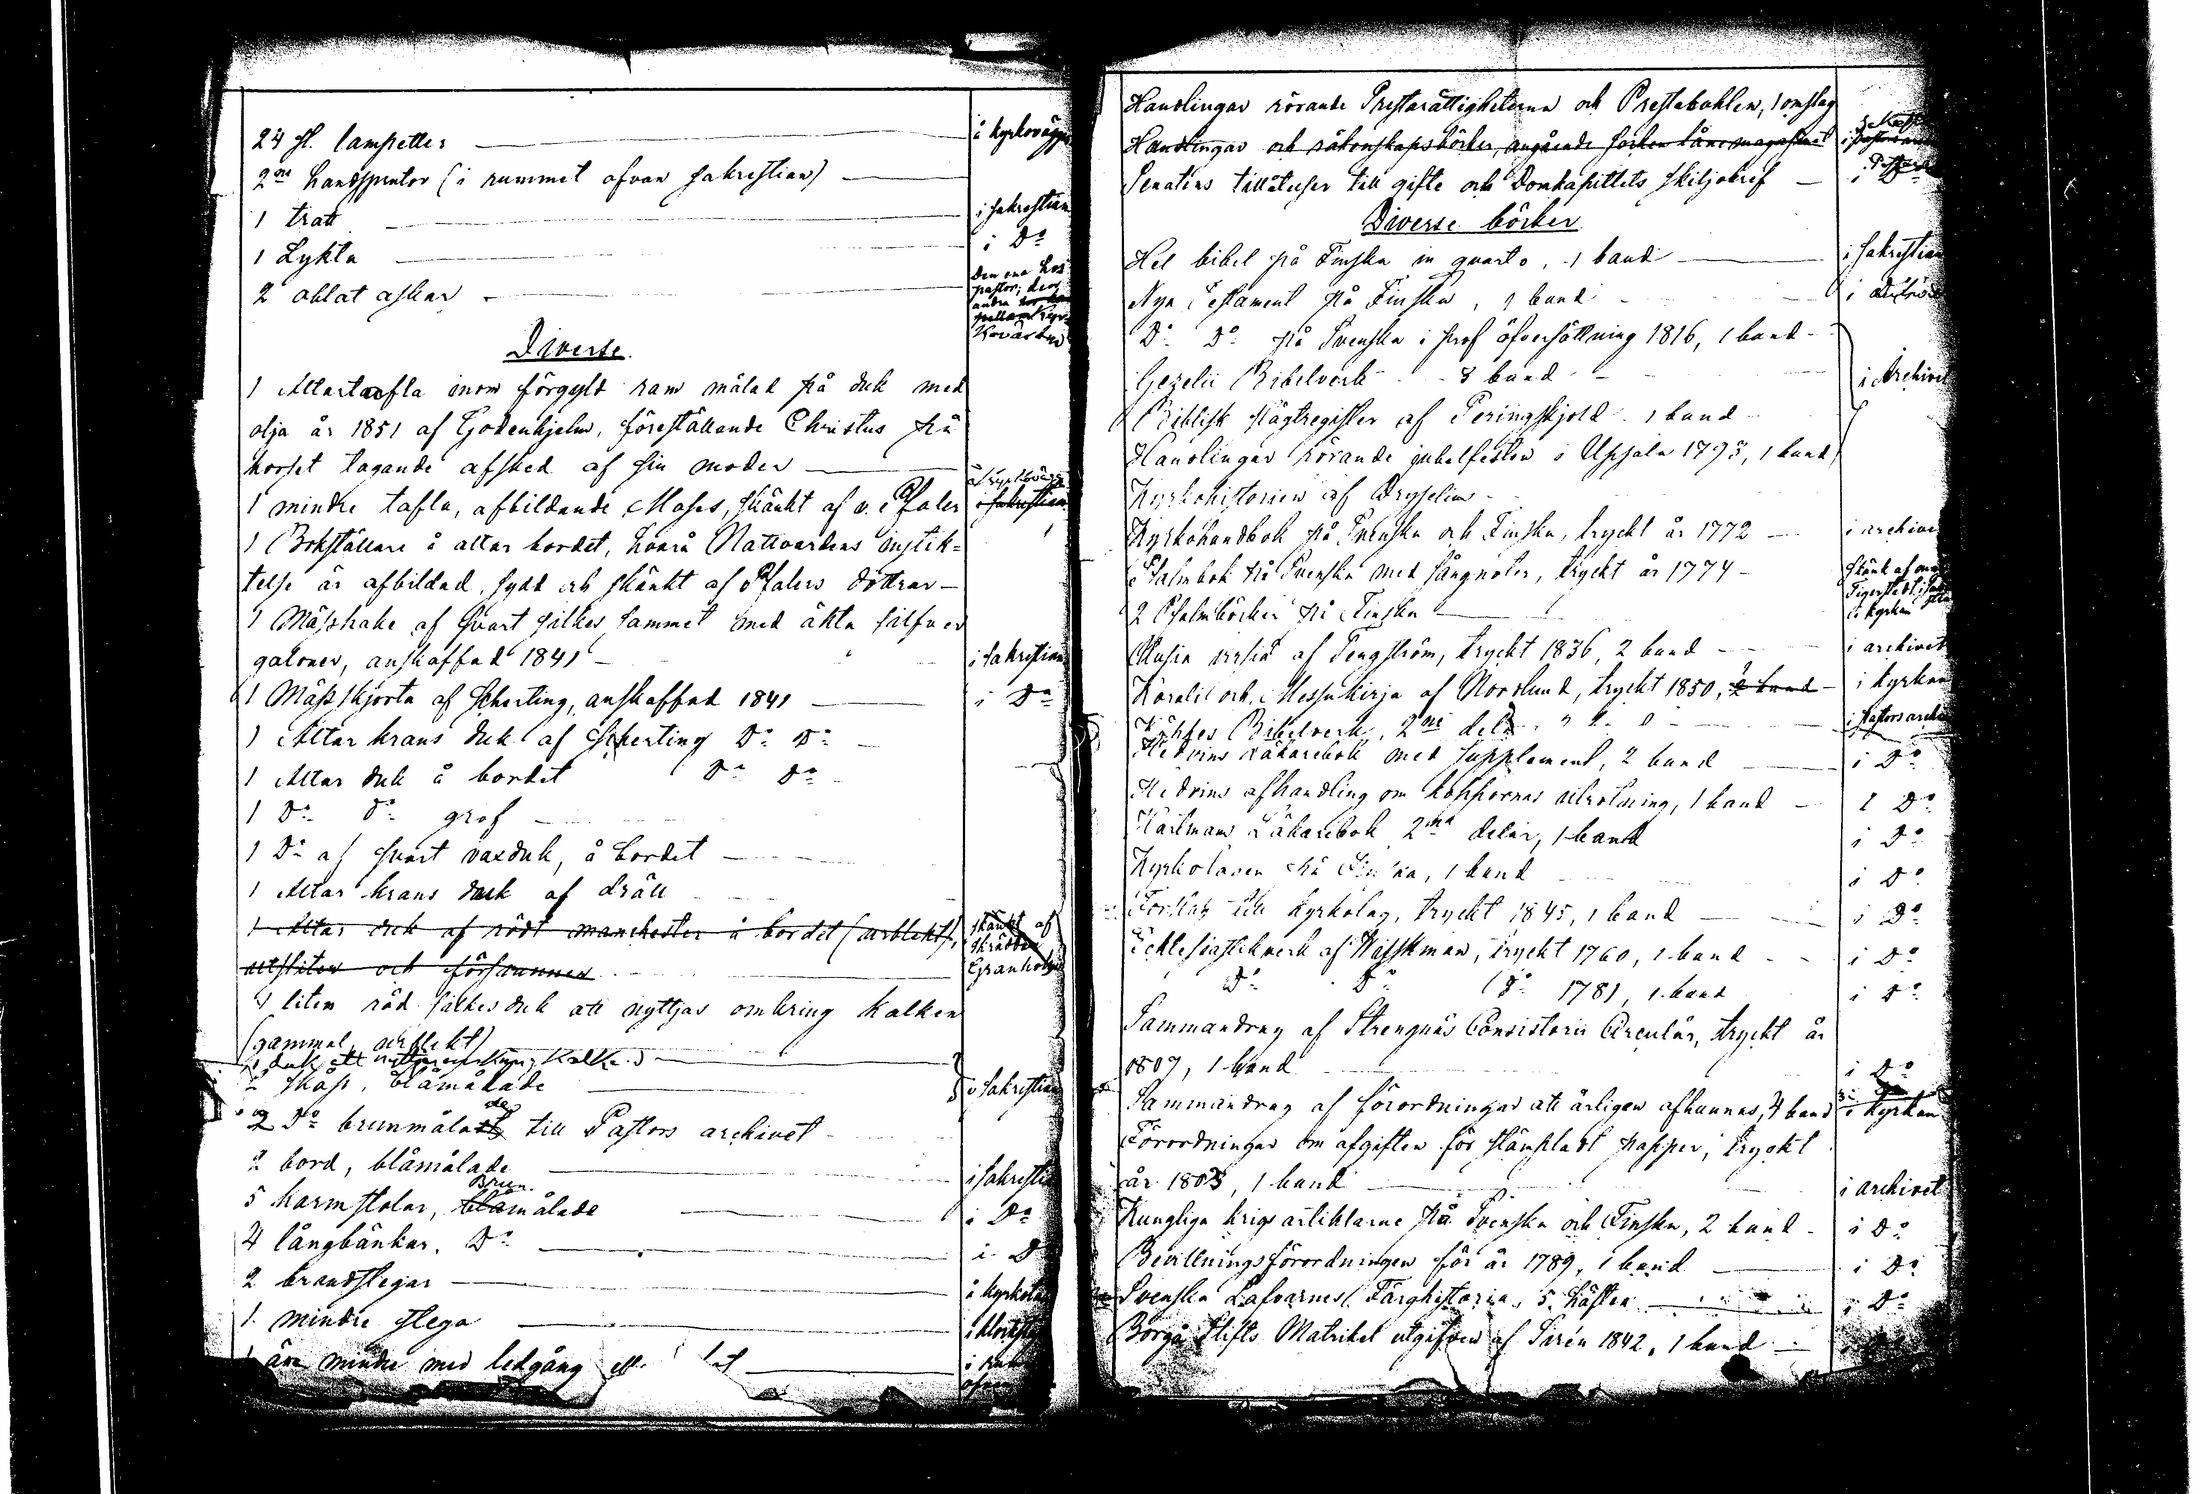 24 st. lampetter — å kyrkovägg
2ne handsprutor (i rummet ofvan sakrestian) —
1 tratt — i sakrestian
1 Lykta — i Do
2 oblat askar — Den ena hos
pastor; den
andra
Diverse.
1 Altartafla inom förgyld ram målad på duk med
olja år 1851 af Godenhjelm, föreställande Christus på
korset tagande afsked af sin moder —
1 mindre tafla, afbildande Moses, skänkt af v. Pfaler — å kyrkovägg i sakrestian
1 Bokställare å altar bordet, hvarå Nattvardens instik-
telse är afbildad, sydd och skänkt af Pfalers döttrar —
1 Mässhake af svart silkes sammet med äkta silfver
galoner, anskaffad 1841 — i sakrestian
1 Mässskjorta af Scherting, anskaffad 1841 — i Do
1 Altar krans duk af Scherting Do Do —
1 Altar duk å bordet Do Do
1 Do Do grof —
1 Do af svart vaxduk, å bordet —
1 Altar krans duk af dräll
1 Altar duk af rödt manchester å bordet (urblekt), skänkt af
utsliten och försvunnen — Skräddar Granholm
1 liten röd silkes duk att nyttjas omkring kalken
(gammal, urblekt)
1 duk att nyttjas omkring Kalken —
2 skåp, blåmålade — i sakrestian
2 Do brunmålade till Pastors archivet
2 bord, blåmålade — i sakrestian
5 karmstolar, blåmålade Brun — i Do
4 långbänkar. Do — i Do
2 brandstegar —
1 mindre stega —
1 än mindre med ledgång
Handlingar rörande Prestarättigheterna och Prestabohlen, 1 omslag
Handlingar och räkenskapsböcker, angående socken låne magasinet
Senatens tillåtelser till gifte och Domkapitlets skiljobref — i Do
Diverse böcker
Hel bibel på Finska in quarto, 1 band — i sakrestian
Nya Testament på Finska, 1 band — i
Do Do på Svenska i prof öfversättning 1816, 1 band —
Gezelii Bibelverk — 8 band — i Archivet
Biblisk slägtregister af Peringskjold. 1 band
Handlingar rörande jubelfesten i Upsala 1793, 1 band
Kyrkohistorien af Dryselius —
Kyrkohandbok på Svenska och Finska, tryckt år 1772 — i archivet
Psalmbok på Svenska med sångnoter, tryckt år 1774 — skänk af
Tigerstedt
2 Psalmböcker på Finska — i kyrkan
Musia af Tengström, tryckt 1836, 2 band — i archivet
Koralit och Messukirja af Nordlund, tryckt 1850, 2 band — i kyrkan
Bibelverk, 2ne delar — i pastors archiv
Hedrins Läkarebok med supplement, 2 band — i Do
Hedrins afhandling om koppornas utrotning, 1 band — i Do
Läkarebok 2ne delar, 1 band — i Do
Kyrkolagen på Finska, 1 band — i Do
Förslag till kyrkolag, tryckt 1845, 1 band — i Do
Ecklesiastikverk af Wasskman, tryckt 1760, 1 band — i Do
Do Do (Do 1781, 1 band — i Do
Sammandrag af Strengnäs Consistorii Circulär, tryckt år
1807, 1 band — i Do
Sammandrag af förordningar att årligen afkunnas, 4 band — i kyrkan
Förordningar om afgiften för stämpladt papper, tryckt
år 1803, 1 band — i archivet
Kungliga krigs artiklarne på Svenska och Finska, 2 band — i Do
Bevillningsförordningen för år 1789, 1 band — i Do
Svenska Lafvarnes Färghistoria, 5 häften — i Do
Borgå Stifts Matrikel utgifven af Sirén 1842, 1 band —